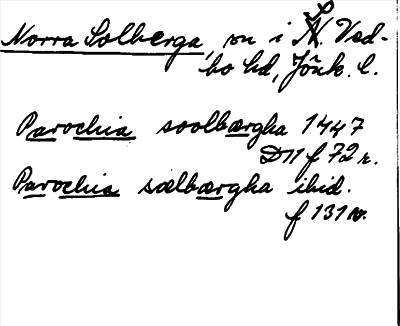 Norra Solberga, sn i S. Ved-
bo hd, Jönk. l.
Parochia soolbærgha 1447
D11 f 72 r.
Parochia sælbærgha ibid.
f 131 v.